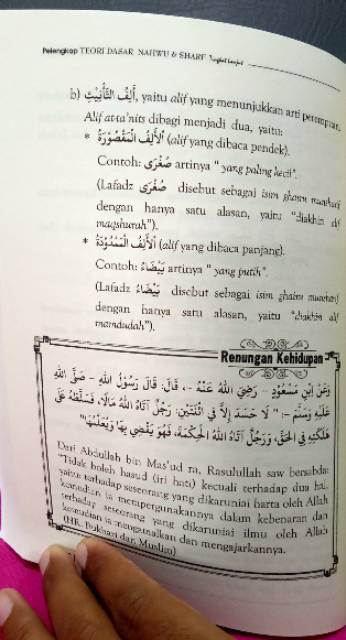 Pelengkap TEORI DASAR NAHWU & SHARF Tingkat Lanjut
b) أَلِفُ التَّأْنِيْثِ, yaitu alif yang menunjukkan arti perempuan.
Alif at-ta'nits dibagi menjadi dua, yaitu:
* الأَلِفُ الْمَقْصُوْرَةُ (alif yang dibaca pendek).
Contoh: صُغْرَى artinya " yang paling kecil".
(Lafadz صُغْرَى disebut sebagai isim ghairu munsharif
dengan hanya satu alasan, yaitu "diakhiri alif
maqshurah").
* الأَلِفُ الْمَمْدُوْدَةُ (alif yang dibaca panjang).
Contoh: بَيْضَاءُ artinya " yang putih".
(Lafadz بَيْضَاءُ disebut sebagai isim ghairu munsharif
dengan hanya satu alasan, yaitu "diakhiri alif
mamdudah").
Renungan Kehidupan
وَعَنْ اِبْنِ مَسْعُوْدٍ - رَضِيَ اللهُ عَنْهُ -، قَالَ: قَالَ رَسُوْلُ اللهِ - صَلَّى اللهُ
عَلَيْهِ وَسَلَّمَ -: " لَا حَسَدَ إِلَّا فِي اثْنَتَيْنِ: رَجُلٌ آتَاهُ اللهُ مَالًا، فَسَلَّطَهُ عَلَى
هَلَكَتِهِ فِي الْحَقِّ، وَرَجُلٌ آتَاهُ اللهُ الْحِكْمَةَ، فَهُوَ يَقْضِي بِهَا وَيُعَلِّمُهَا"
Dari Abdullah bin Mas'ud ra, Rasulullah saw bersabda:
"Tidak boleh hasud (iri hati) kecuali terhadap dua hal,
yaitu terhadap seseorang yang dikaruniai harta oleh Allah
kemudian ia mempergunakannya dalam kebenaran dan
terhadap seseorang yang dikaruniai ilmu oleh Allah
kemudian ia mengamalkan dan mengajarkannya.
(HR. Bukhari dan Muslim)